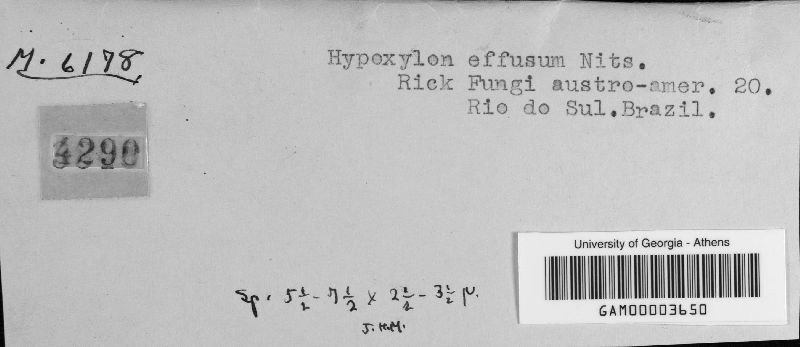 M. 6178
Hypoxylon effusum Nits.
Rick Fungi austro-amer. 20.
Rio do Sul. Brazil.
4290
University of Georgia - Athens
GAM00003650
Sp. 5 1/2 - 7 1/2 x 2 1/2 - 3 1/2 µ.
J.H.M.